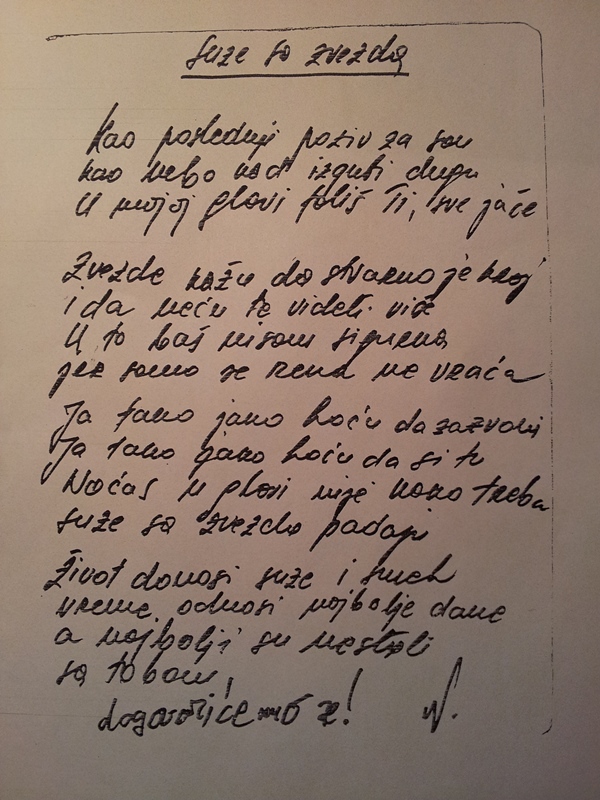 suze sa zvezda
Kao poslednji poziv za son
kao nebo kad izgubi dugu
U mojoj glavi foliš Ti, sve jače
Zvezde kažu da stvarno je kraj
i da neću te videti više
U to baš nisam sigurna
jer samo se rena ne vraća
Ja tako jako hoću da zazvoni
Ja tako jako hoću da si tu
Noćas u glavi nije kako treba
suze sa zvezda padaju
Život donosi suze i smeh
vreme odnosi najbolje dane
a najbolji su nestali
sa tobom,
dogorećemo se! N.